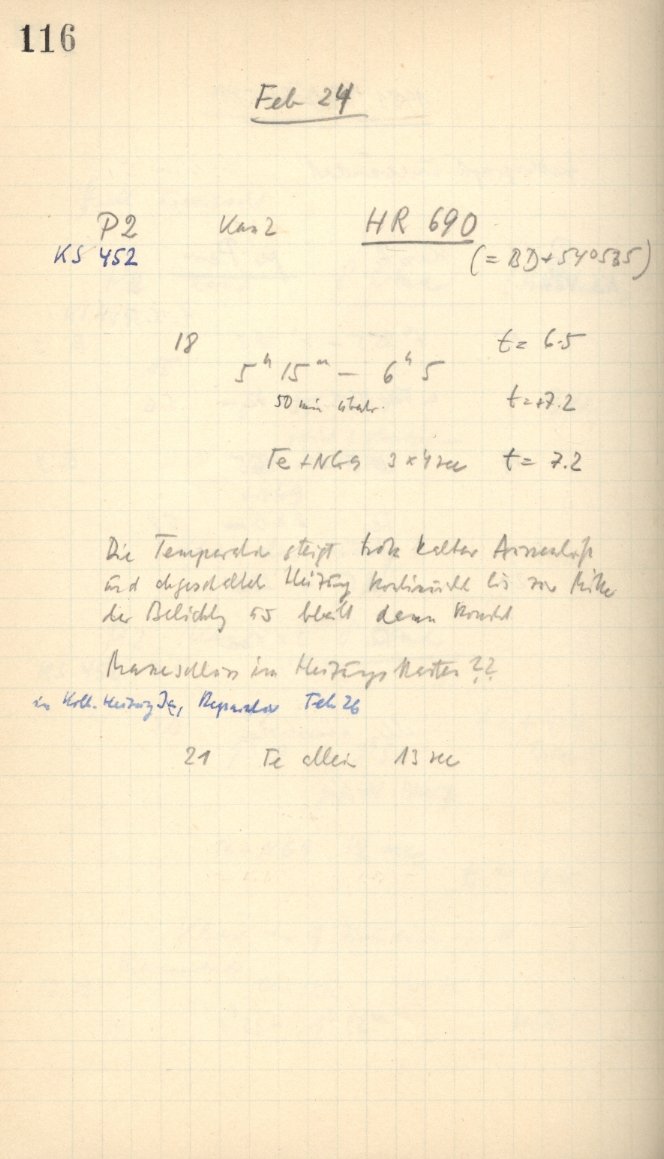 116
Feb 24
P2 Kas 2 HR 690
KS 452 (= BD+54°535)
18 t = 6.5
5h 15m — 6h 5
50 min t=+7.2
Te + NGa 3 x 4 sec t = 7.2
Die Temperatur steigt trotz kalter Aussenluft
und abgeschalteter Heizung kontinuierlich bis zur Mitte
der Belichtg und bleibt dann konstant
Masseschluss im Heizungskasten??
in Koll. Heizung Ja, Reparatur Feb 26
21 Te allein 13 sec